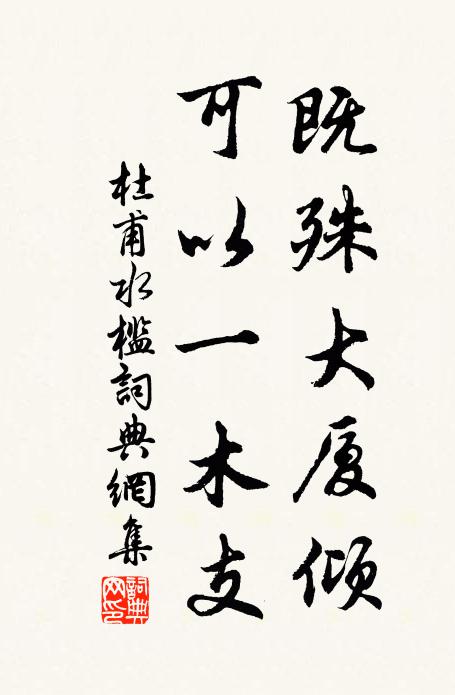 既殊大厦倾
可以一木支
杜甫水槛詞典網集
詞典网印